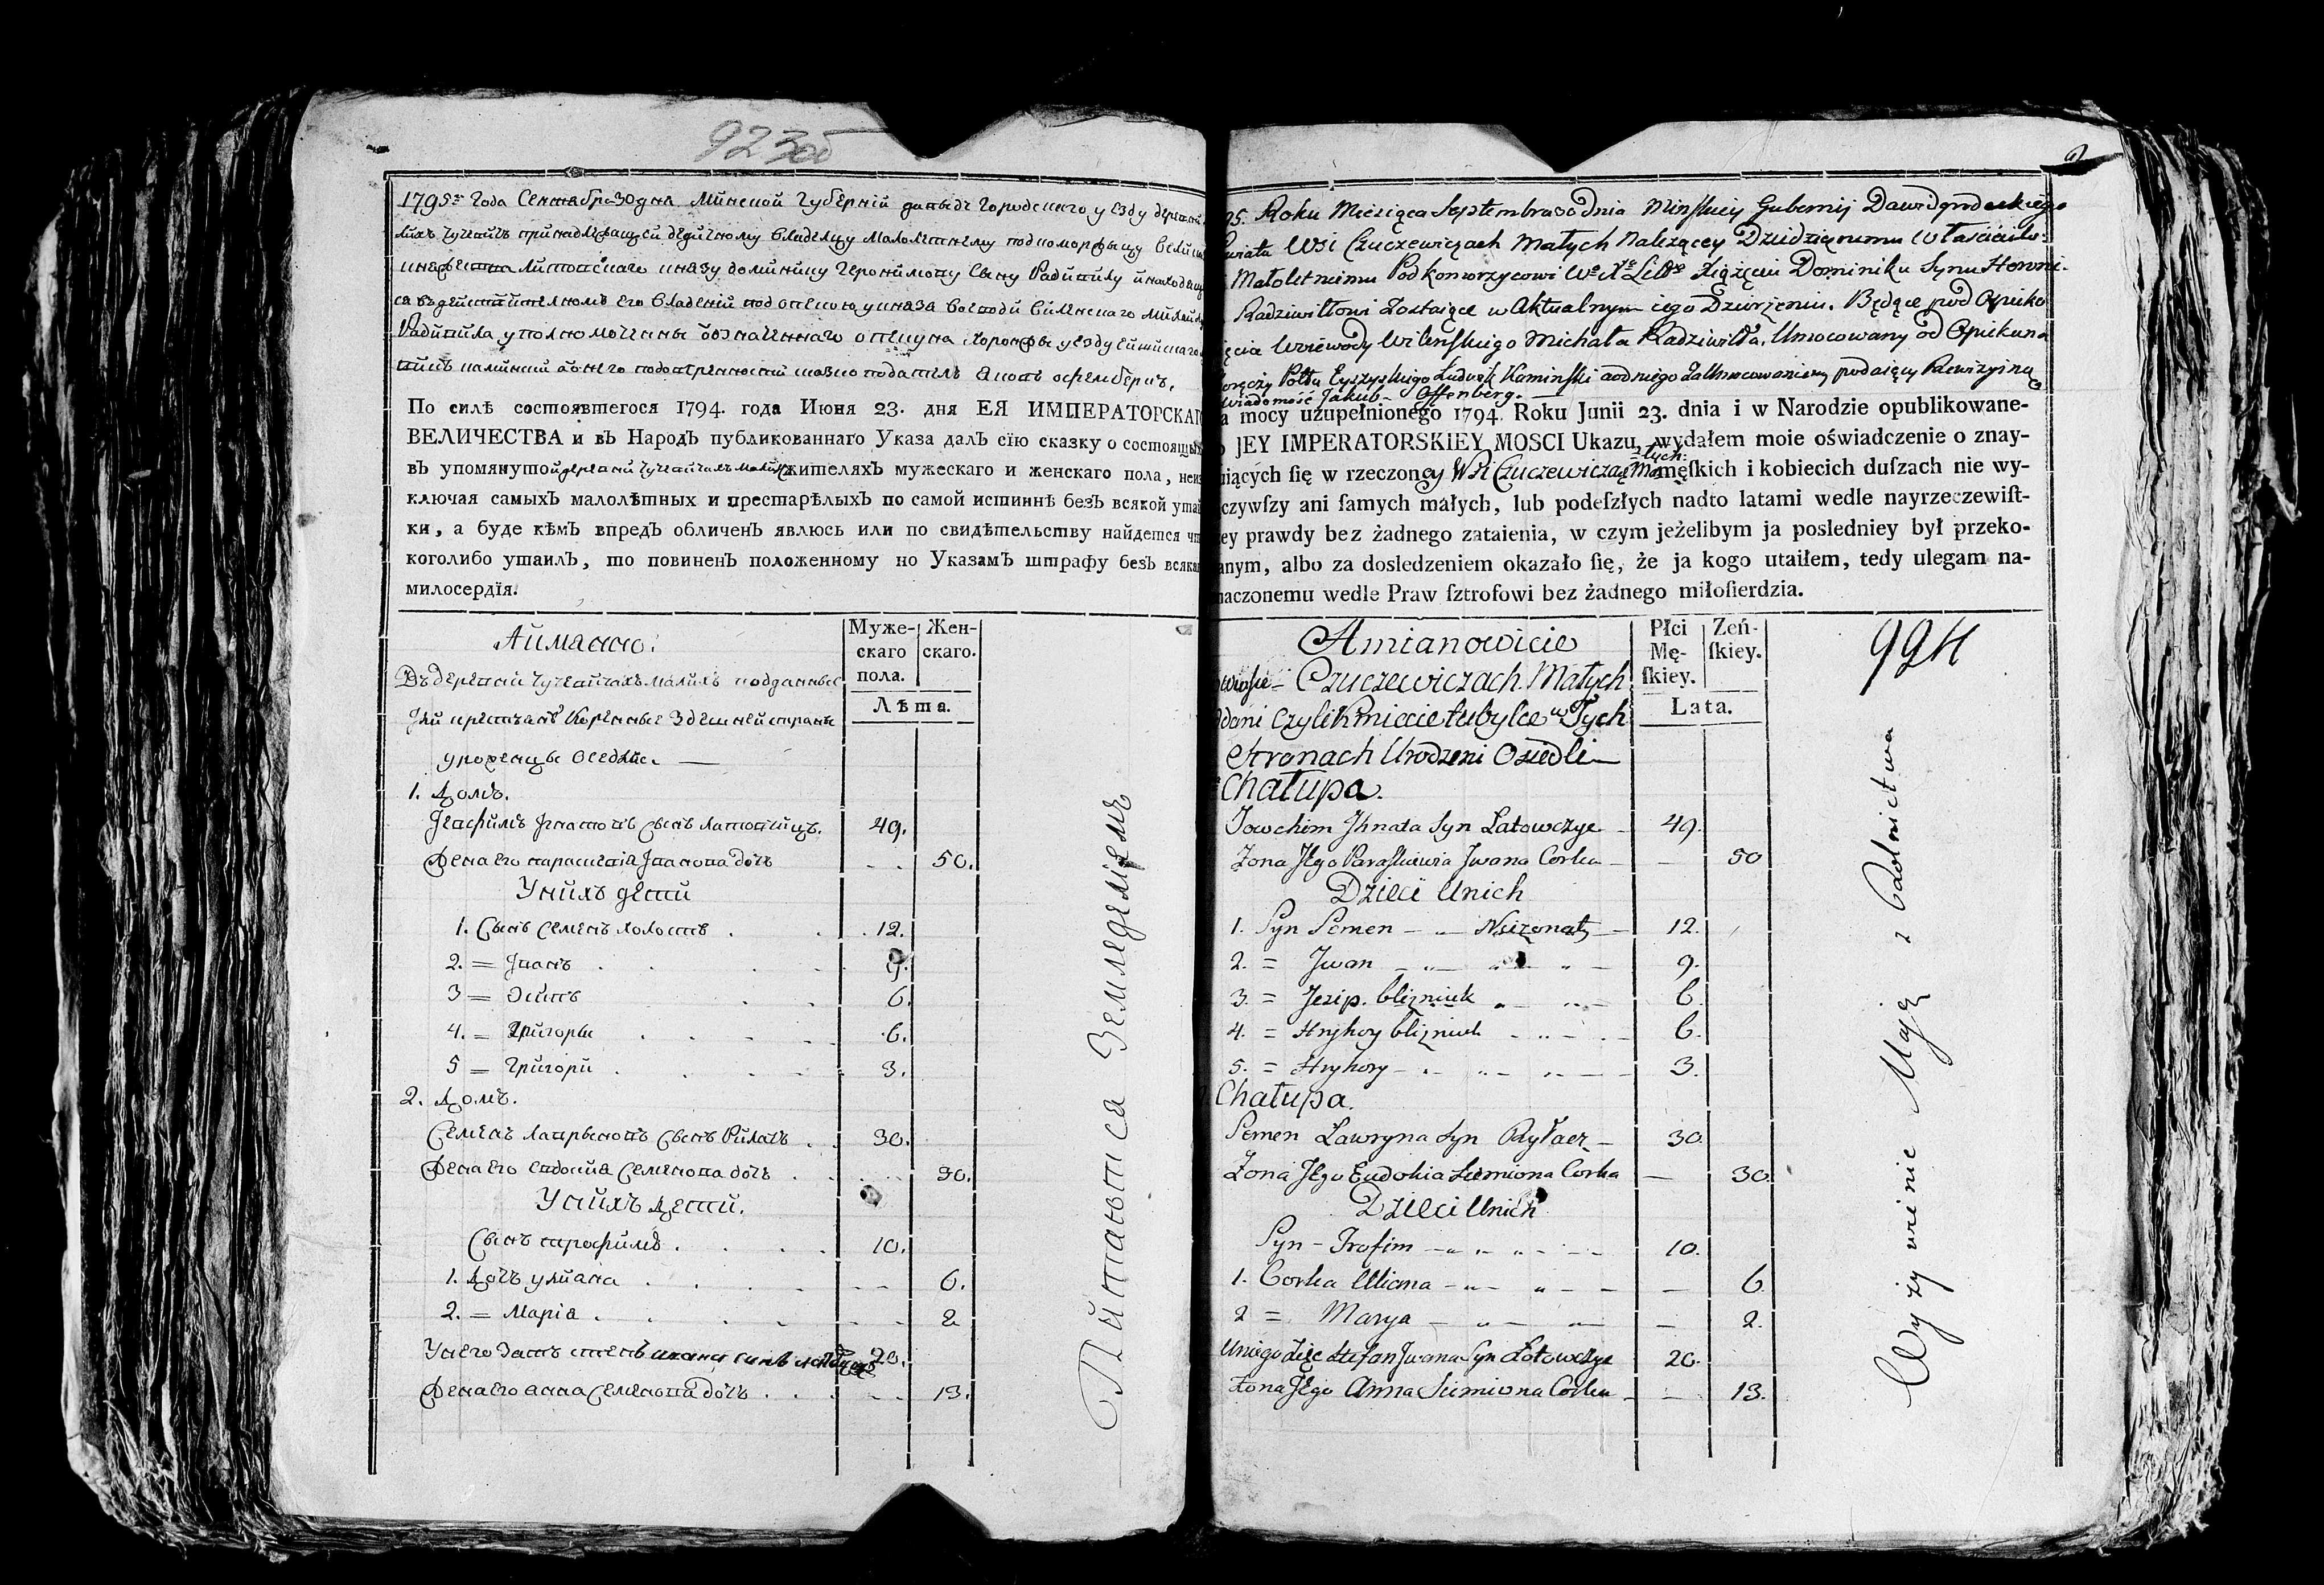 923об
1795го Года Сентабра 30 дна Минской Губерній давыдъ Городскаго уезду деревни
лихъ Чучевичъ принадлежащей дедичному владелцу малолетнему подкоморжицу великаго
княжества литовскаго князу доминику Геронимову сыну Радивилу и находащи
са въ действителномъ его владений под опекою княза воеводи виленскаго михайла
Радивила, уполномоченны ѿ означеннаго опекуна Хоронжы уезду ейшискаго
каминский
По силѣ состоявшегося 1794. года Июня 23. дня ЕЯ ИМПЕРАТОРСКАГО
ВЕЛИЧЕСТВА и въ Народъ публикованнаго Указа далъ сїю сказку о состоящихъ
въ упомянутой деревни Чучевичахъ малихъ жителяхъ мужескаго и женскаго пола, неиз
ключая самыхъ малолѣтныхъ и престарѣлыхъ по самой истиннѣ безъ всякой утай
ки, а буде кѣмъ впредъ обличенъ явлюсь или по свидѣтельству найдется что
коголибо утаилъ, то повиненъ положенному по Указамъ штрафу безъ всякаго
милосердїя.
Аймянно:
Муже-скаго пола.
Жен-скаго.
Лѣта.
Въ деревни Чучевичахъ малихъ подданные
или крестьане Коренные Здешней стране
уроженцы оседлые. —
1. домъ.
Іевхимъ Игнатовъ сынъ латовчицъ. 49.
Жена его параскевіа Иванова дочъ 50.
У нихъ дети
1. Сынъ Семенъ холостъ 12.
2. = Иванъ 9.
3 = Эсипъ 6.
4. = Григоры 6.
5 = Григори 3.
2. домъ.
Семенъ лавриновъ сынъ Рилачъ 30.
Жена его евдокия Семенова дочъ 30.
У нихъ дети.
Сынъ трофимъ 10.
1. дочъ улйана 6.
2. = Маріа 2
У него Зать степанъ 20.
Жена его анна Семенова дочъ 13.
Питаютса Земледеліемъ
95. Roku Miesiąca Septembra 30 Dnia Minskiey Gubernij Dawidgrodzkiego
Powiata Wsi Czuczewiczach Małych Należącey Dziedzicznemu Właścicilo-
Małoletniemu Podkomorzycowi Wo Xa Litgo Xiążęciu Dominiku Synu Heroni-
Radziwiłłowi Zostaiące w Aktualnym iego Dzierżeniu. Będące pod Opieką
Xięcia Woiewody Wilenskiego Michała Radziwiłła. Umocowany od Opiekuna
Chorąży Połtu Eyszyskiego Ludwik Kaminski a od niego Załmocowaniem podaiący Rewizyiną
Wiadomość Jakub Offenberg. —
a mocy uzupełnionego 1794. Roku Junii 23. dnia i w Narodzie opublikowane-
o JEY IMPERATORSKIEY MOSCI Ukazu, wydałem moie oświadczenie o znay-
uiących ſię w rzeczoney Wsi Czuczewiczach Małych męſkich i kobiecich duſzach nie wy-
czywſzy ani ſamych małych, lub podeſzłych nadto latami wedle nayrzeczewiſt-
ey prawdy bez żadnego zataienia, w czym jeżelibym ja posledniey był przeko-
anym, albo za dosledzeniem okazało ſię, że ja kogo utaiłem, tedy ulegam na-
naczonemu wedle Praw ſztrofowi bez żadnego miłoſierdzia.
Amianowicie
Płci Mę-ſkiey.
Zeń-ſkiey.
Lata.
994
w Wsie Czuczewiczach Małych
ddani Czyli Kmiecie tubylce w Tych
Stronach Urodzeni Osiedli —
Chałupa.
Jowchim Jhnata Syn Łatowczyc 49.
Zona Jego Paraskiewia Jwana Corka 50
Dzieci Unich
1. Syn Semen Nieżonaty 12.
2. = Jwan 9.
3. = Jezip. bliźniuk 6.
4. = Hryhory bliźniuk 6.
5. = Hryhory 3.
Chałupa.
Semen Ławryna Syn Ryłacz 30.
Zona Jego Eudokia Siemiona Corka 30.
Dzieci Unich
Syn - Trofim 10.
1. Corka Uliana 6
2 = Marya 2.
Uniego Zięć Stefan Jwana Syn Łotowczyc 20.
Zona Jego Anna Siemiona Corka 13.
Wyżywienie Mają z Rolnictwa